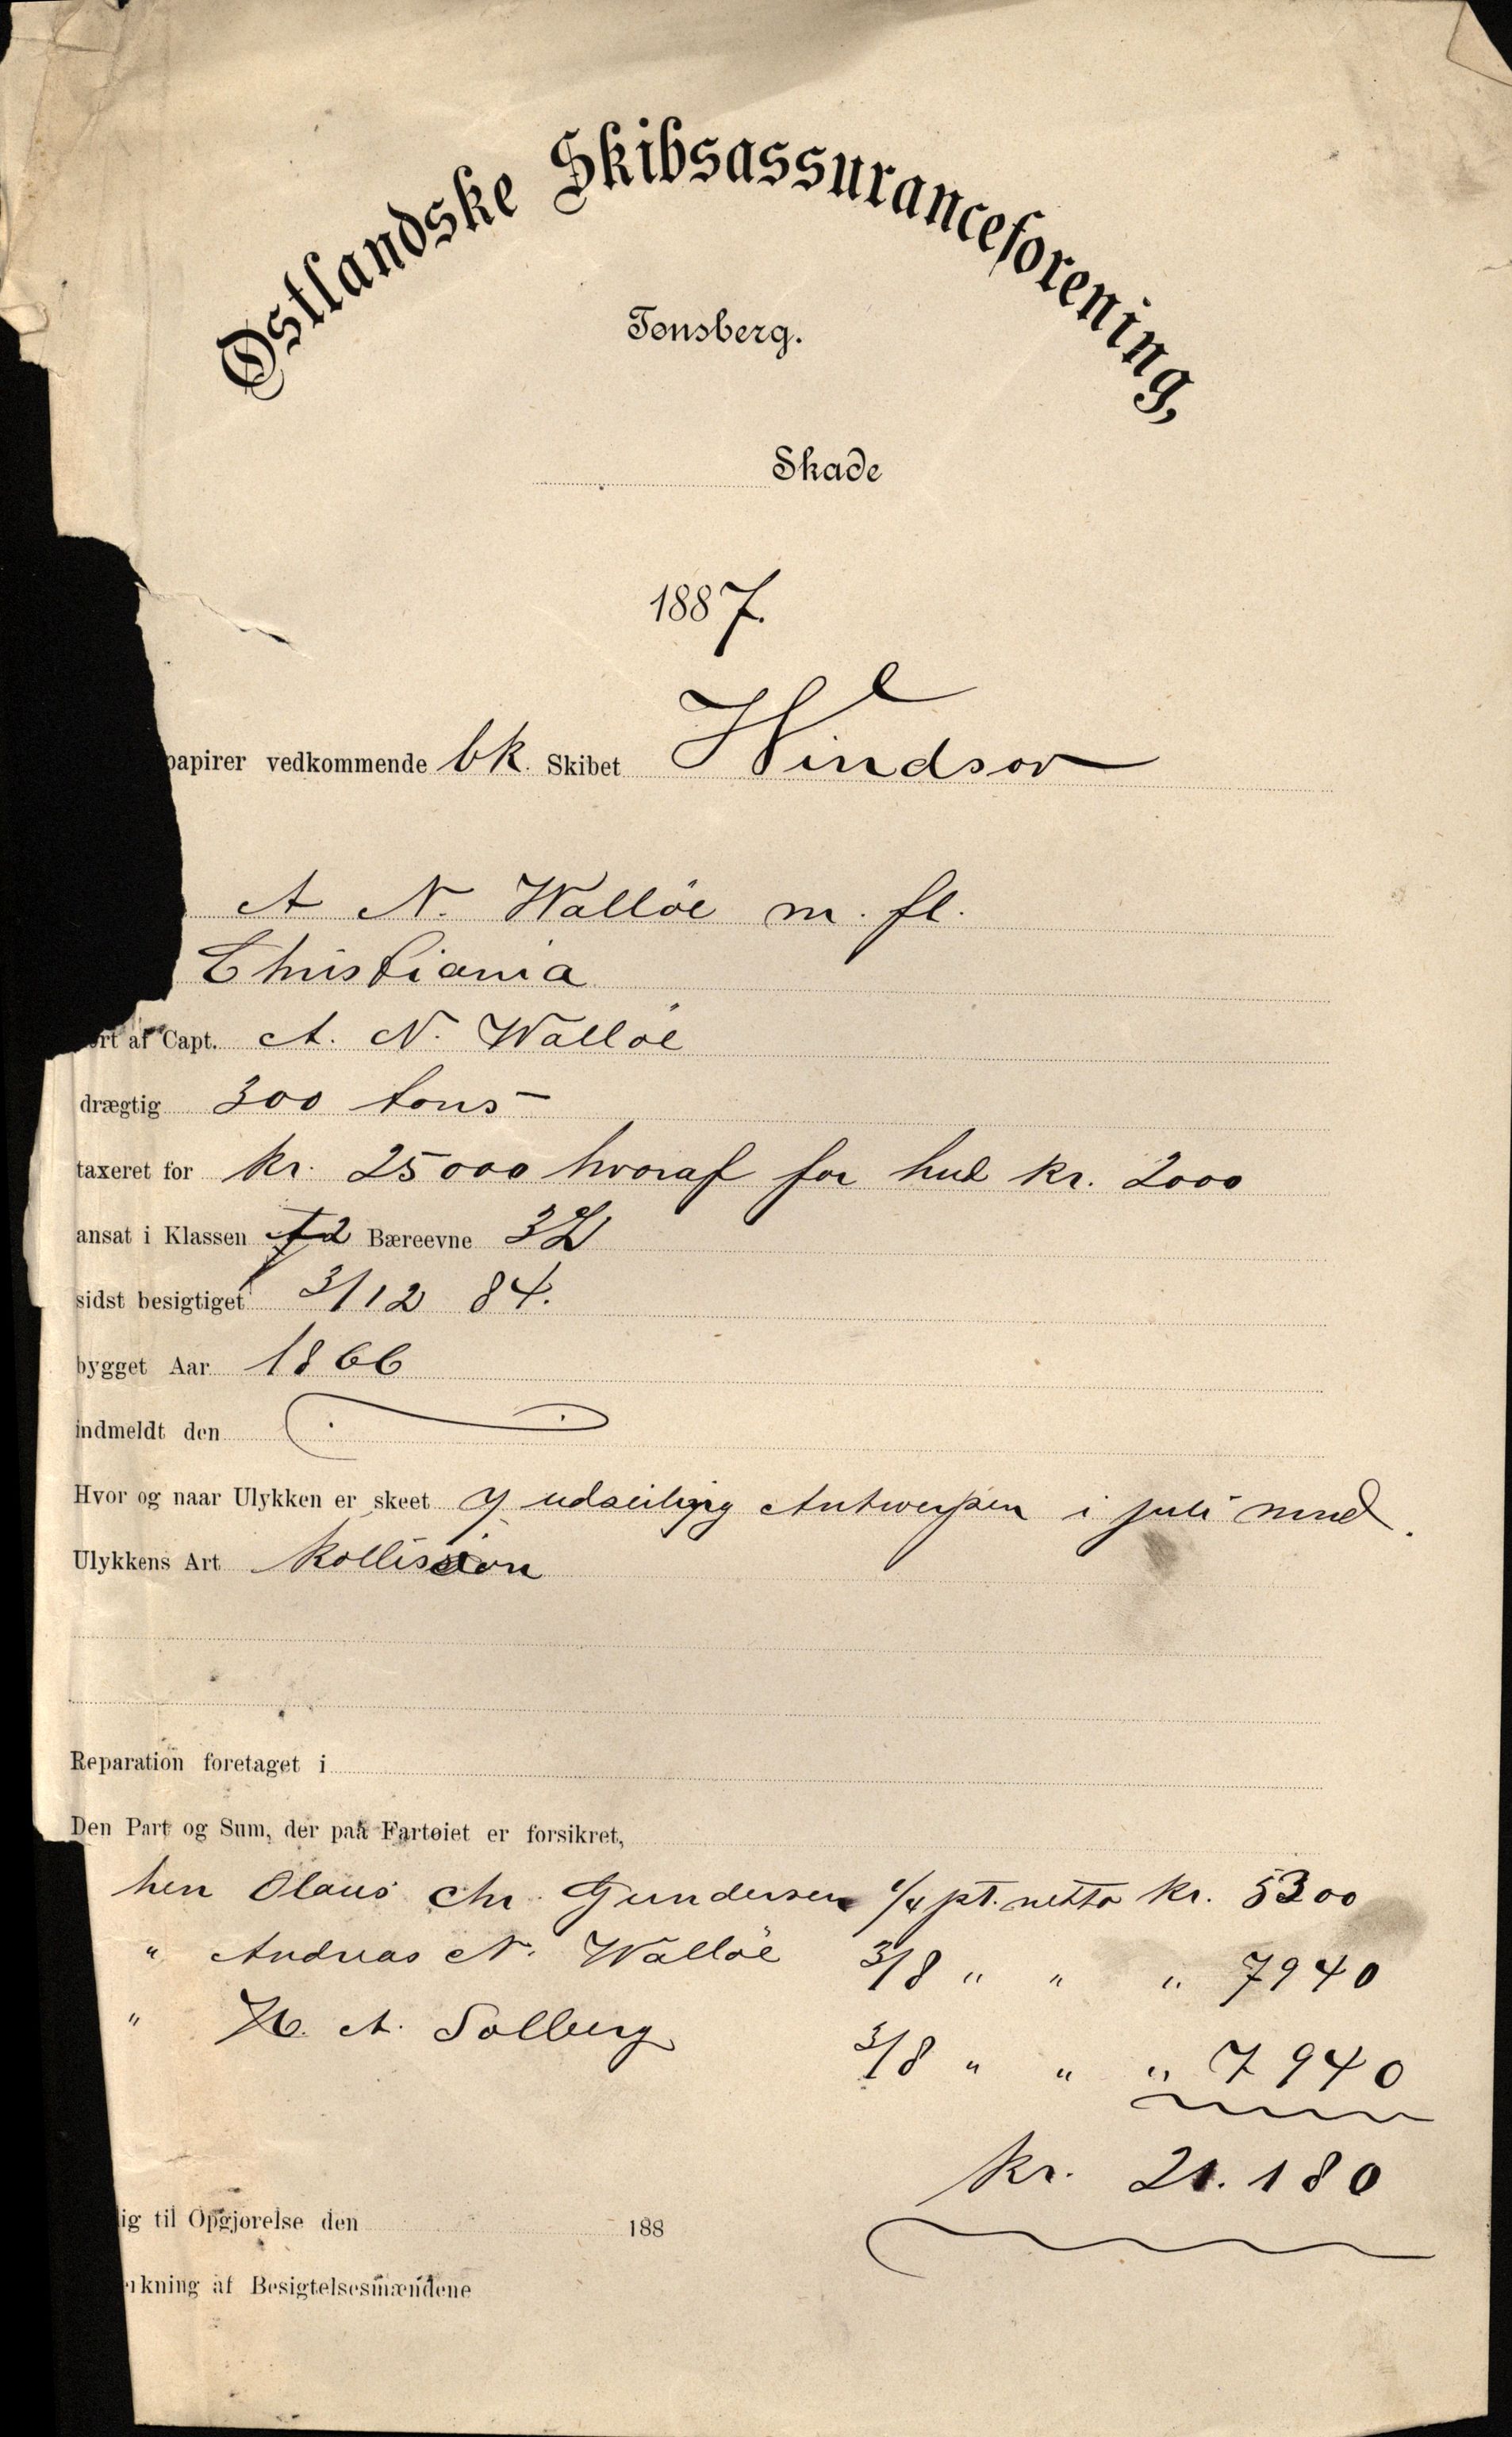 Østlandske Skibsassuranceforening,
Tønsberg.
Skade
1887.
papirer vedkommende bk. Skibet Windsor
A N. Walløe m. fl.
Christiania
ørt af Capt. A. N. Walløe
drægtig 300 tons
taxeret for kr. 25000 hvoraf for hud kr. 2000
ansat i Klassen A2 Bæreevne
sidst besigtiget 3/12 84.
bygget Aar 1866
indmeldt den
Hvor og naar Ulykken er skeet udseiling Antwerpen i juli mnd.
Ulykkens Art kollision
Reparation foretaget i
Den Part og Sum, der paa Fartøiet er forsikret,
herr Olaus Chr. Gundersen 1/4 pt. netto kr. 5300
" Andreas N. Walløe 3/8 " " " 7940
" H. A. Solberg 3/8 " " " 7940
kr. 21.180
lig til Opgjørelse den 188
rkning af Besigtelsesmændene